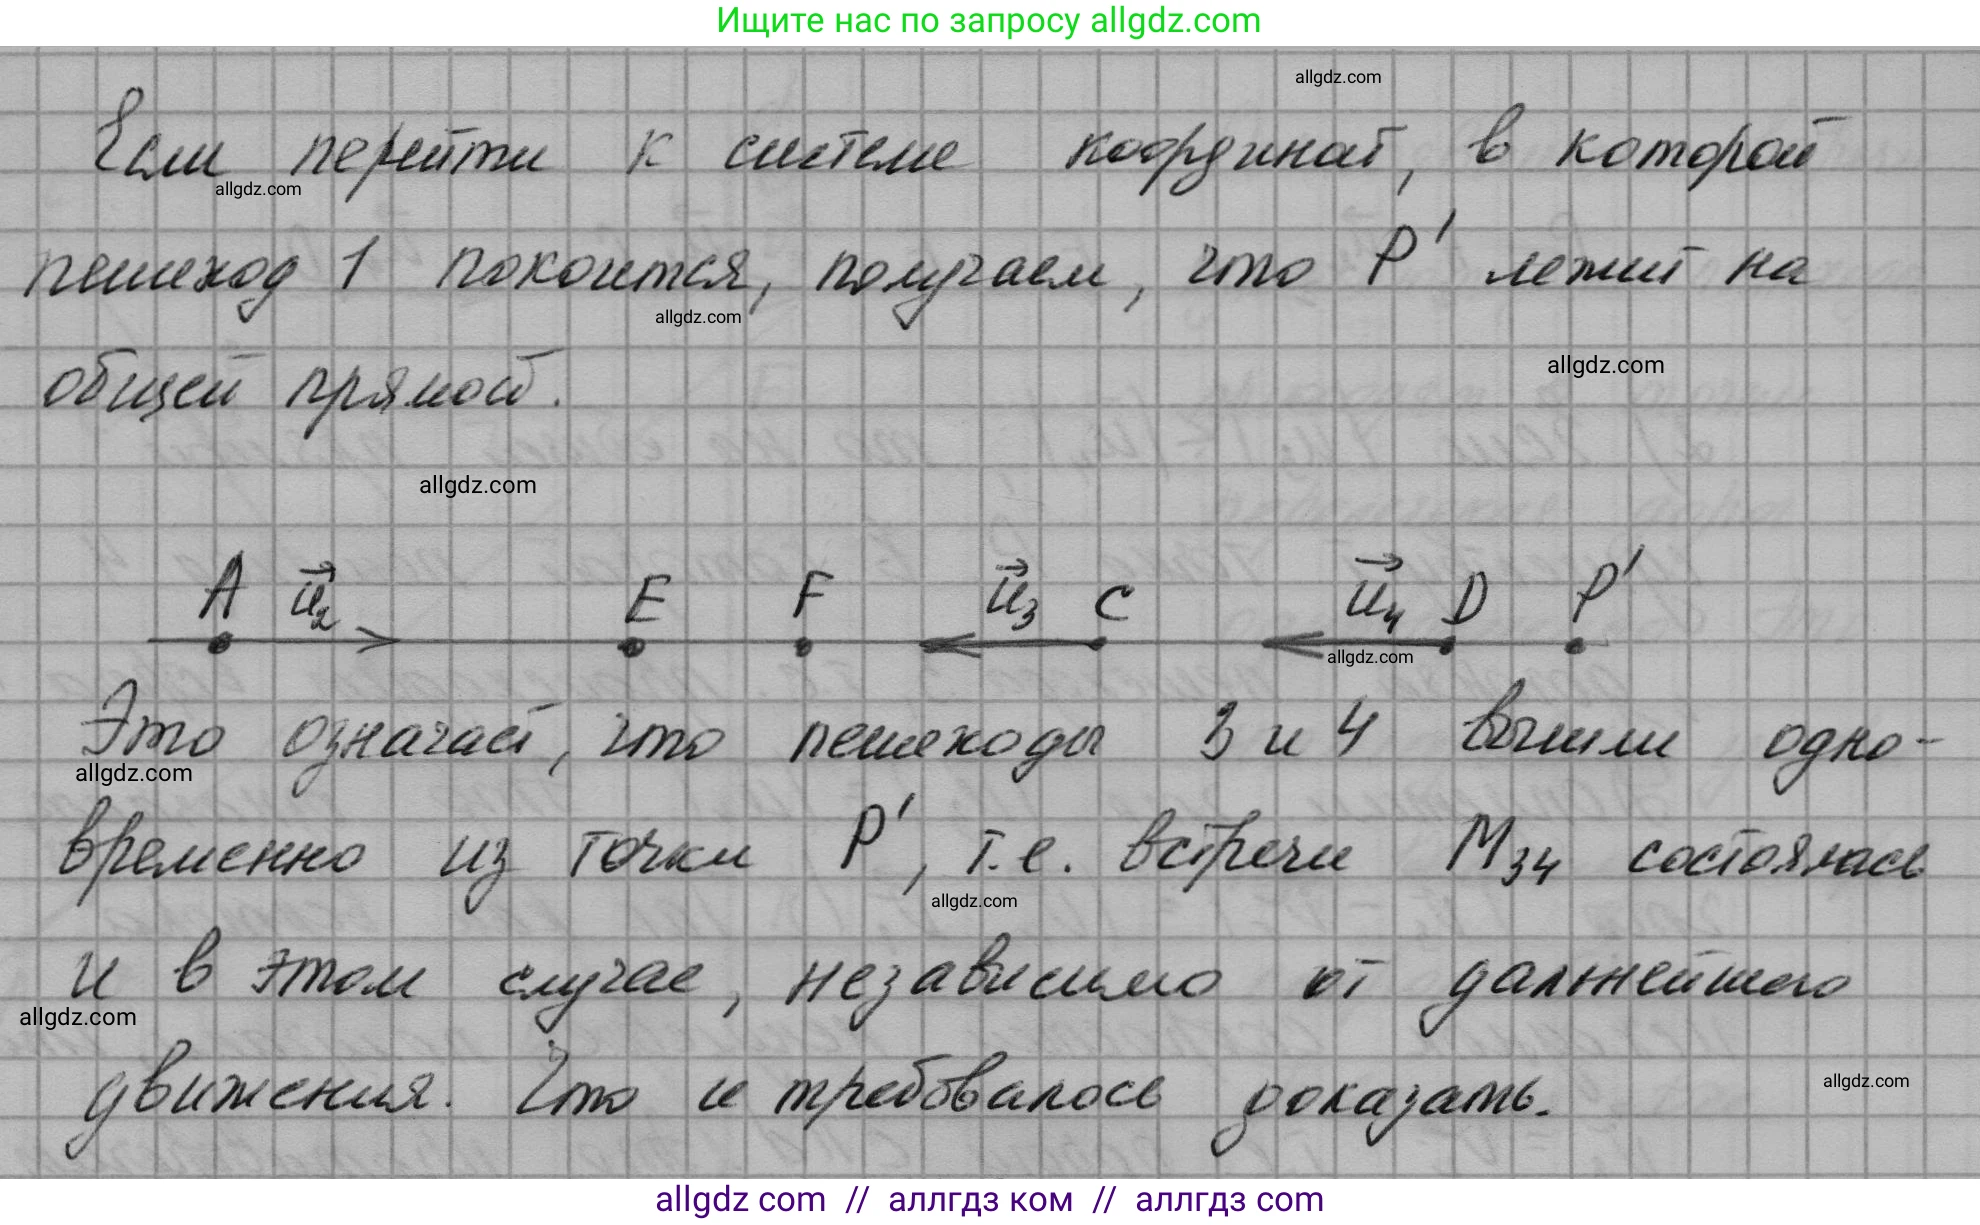 Ищите нас по запросу allgdz.com
allgdz.com
Если перейти к системе координат, в которой
allgdz.com
пешеход 1 покоится, получаем, что P' лежит на
allgdz.com
общей прямой.
allgdz.com
allgdz.com
A u₂ E F u₃ C u₄ D P'
allgdz.com
Это означает, что пешеходы 3 и 4 вышли одно-
allgdz.com
временно из точки P', т.е. встречи M₃₄ состоялась
allgdz.com
и в этом случае, независимо от дальнейшего
allgdz.com
движения. Что и требовалось доказать.
allgdz.com
allgdz com // аллгдз ком // аллгдз com